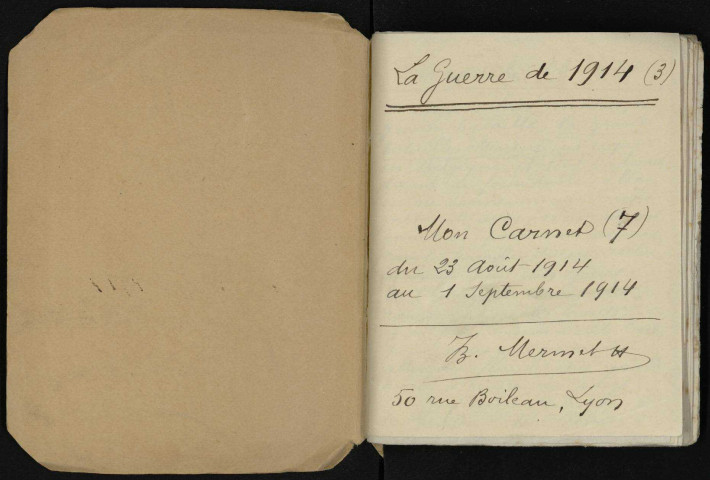 La Guerre de 1914 (3)
Mon Carnet (7)
du 23 Août 1914
au 1 Septembre 1914
Mermet
50 rue Boileau, Lyon